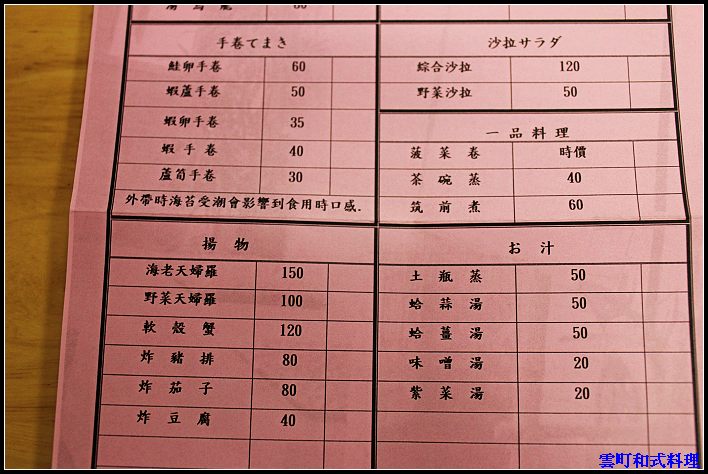 手卷てまき
鮭卵手卷 60
蝦蘆手卷 50
蝦卵手卷 35
蝦手卷 40
蘆筍手卷 30
外帶時海苔受潮會影響到食用時口感.
沙拉サラダ
綜合沙拉 120
野菜沙拉 50
一品料理
菠菜卷 時價
茶碗蒸 40
筑前煮 60
揚物
海老天婦羅 150
野菜天婦羅 100
軟殼蟹 120
炸豬排 80
炸茄子 80
炸豆腐 40
お汁
土瓶蒸 50
蛤蒜湯 50
蛤薑湯 50
味噌湯 20
紫菜湯 20
雲町和式料理